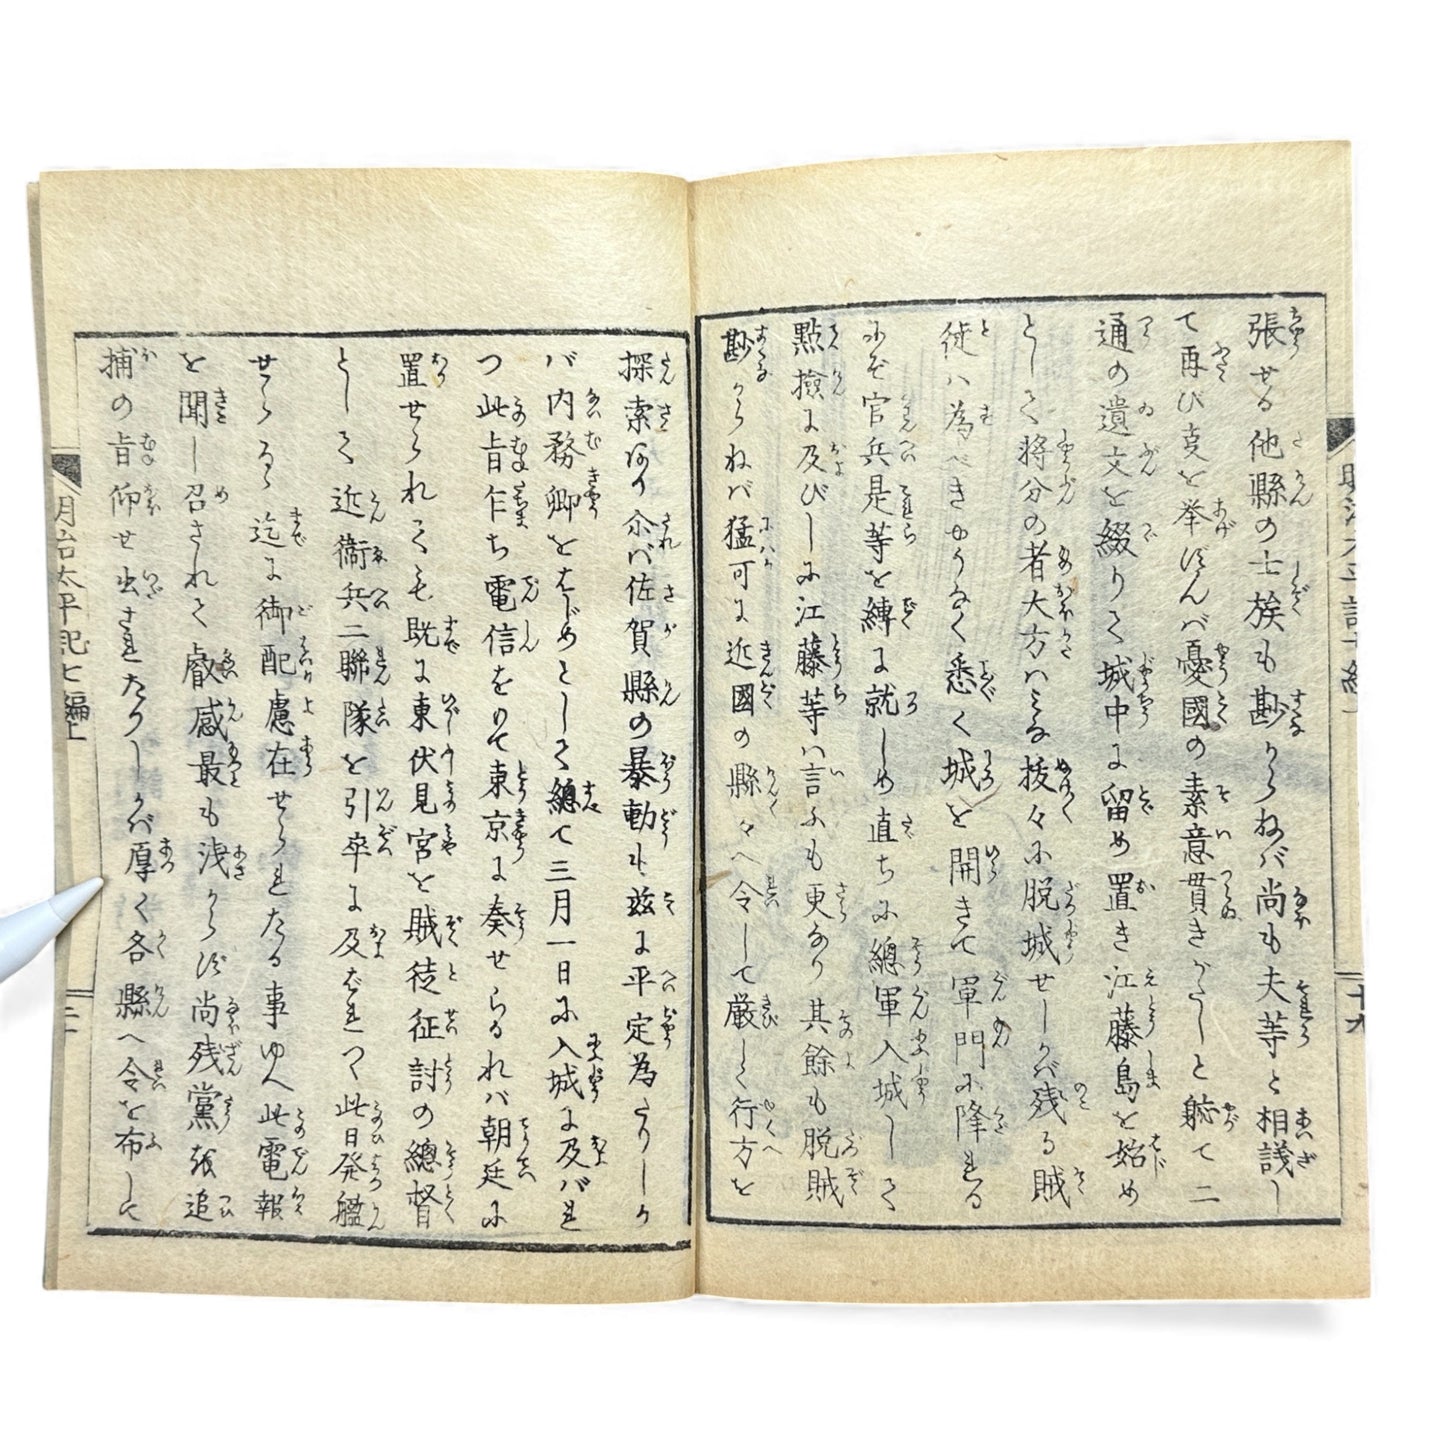 張せる他縣の士族も尠からねバ尚も夫等と相議し
て再び克を挙げんバ憂國の素意貫きがたしと躮て二
通の遺文を綴りて城中に留め置き江藤島を始め
として将分の者大方ハミな抜々に脱城せしかバ残る賊
徒ハ為べきやうなく悉く城を開きて軍門に降れる
にぞ官兵是等を縛に就しめ直ちに總軍入城して
點撿に及びしに江藤等ハ言ふも更なり其餘も脱賊
尠からねバ猛可に近國の縣々へ令して厳しく行方を
探索あり介バ佐賀縣の暴動も茲に平定為たりしか
バ内務卿をはじめとして總て三月一日に入城に及バれ
つ此旨乍ち電信をもて東京に奏せらるれバ朝廷に
置せられても既に東伏見宮を賊徒征討の總督
として近衞兵二聯隊を引卒に及ばれつ此日発艦
せらるゝ迄に御配慮在せられたる事ゆへ此電報
を聞し召されて叡感最も浅からず尚残黨を追
捕の旨仰せ出されたりしかバ厚く各縣へ令を布して
明治太平記七編上